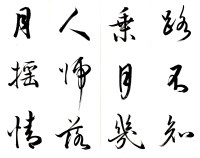 路不知
乘月幾
人归落
月摇情